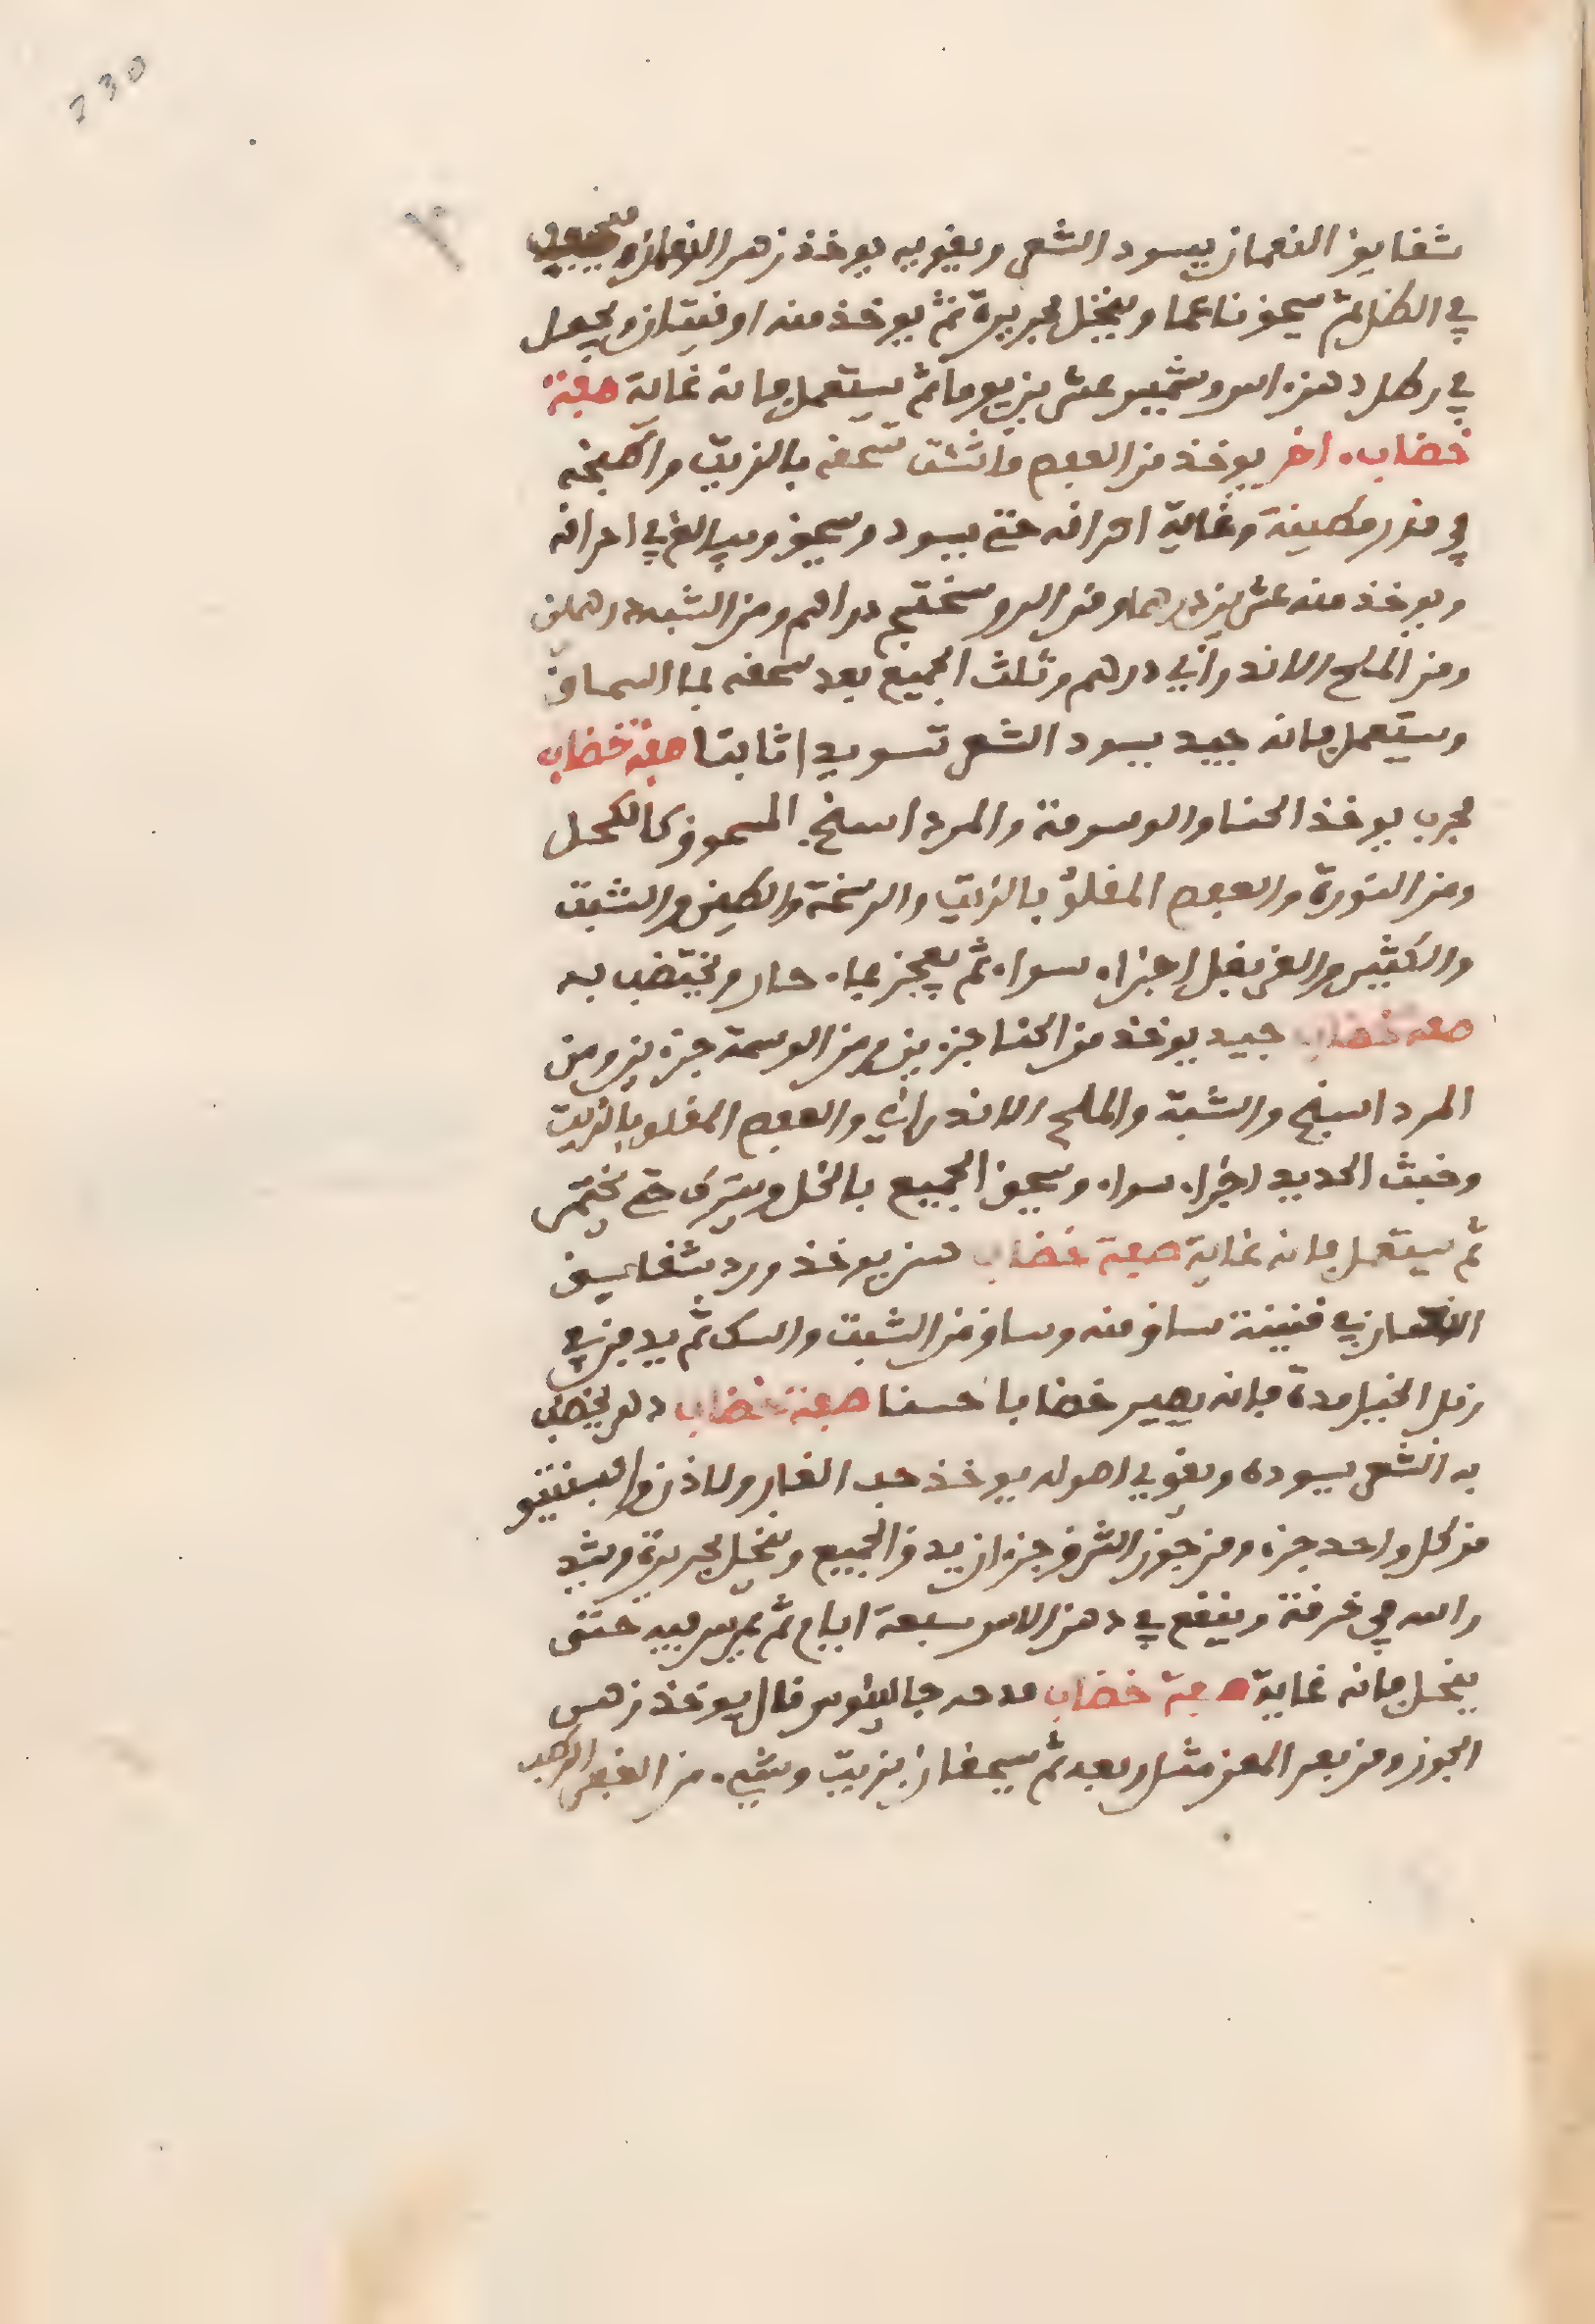 230
شقايق النعمان يسود الشعر ويقويه يوخذ زهر النعمان ويجفف
في الظل ثم يسحق ناعما وينخل بحريرة ثم يوخذ منه اوقيتان ويجعل
في رطل دهن اس ويشمس عشرين يوما ثم يستعمل فانه غاية صفة
خضاب اخر يوخذ من العفص ما شئت تسحقه بالزيت واطبخه
في قدر مطينة وغاية احراقه حتى يسود ويسحق ويبالغ في احراقه
ويوخذ منه عشرين درهما ومن الروسختج دراهم ومن الشب درهمان
ومن الملح الاندراني درهم وثلث الجميع بعد سحقه بما السماق
ويستعمل فانه جيد يسود الشعر تسويدا ثابتا صفة خضاب
مجرب يوخذ الحنا والوسومة والمرداسنج المسحوق كالكحل
ومن النورة والعفص المقلو بالزيت والرسخة والطين والشبت
والكثير والقرنفل اجزاء سواء ثم يعجن بماء حار ويختضب به
صفة خضاب جيد يوخذ من الحنا جزءين ومن الوسمة جزءين ومن
المرداسنج والشبة والملح الاندراني والعفص المقلو بالزيت
وخبث الحديد اجزاء سواء ويسحق الجميع بالخل ويترك حتى يختمر
ثم يستعمل فانه غاية صفة خضاب حسن يوخذ ورد شقايق
النعمان في قنينة ساف منه وساف من الشبت والسك ثم يدفن في
زبل الخيل مدة فانه يصير خضابا حسنا صفة خضاب دهن يخضب
به الشعر يسوده ويقوي اصوله يوخذ حب الغار ولاذن وافسنتين
من كل واحد جزء ومن جوز السرو جزءان يدق الجميع وينخل بحريرة ويشد
راسه في خرقة وينقع في دهن الاس سبعة ايام ثم يمرس فيه حتى
ينحل فانه غاية صفة خضاب مدحه جالينوس قال يوخذ زهر
الجوز ومن بعر المعز مثل وبعد ثم يسحقان بزيت وشيء من القفر الرطب